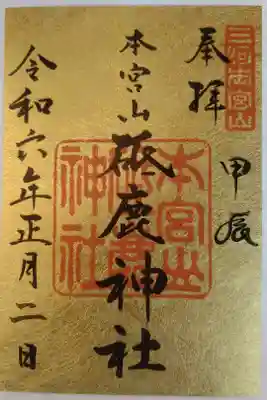 三河本宮山
奉拝
甲辰
本宮山 砥鹿神社
令和六年正月二日
本宮山
神社